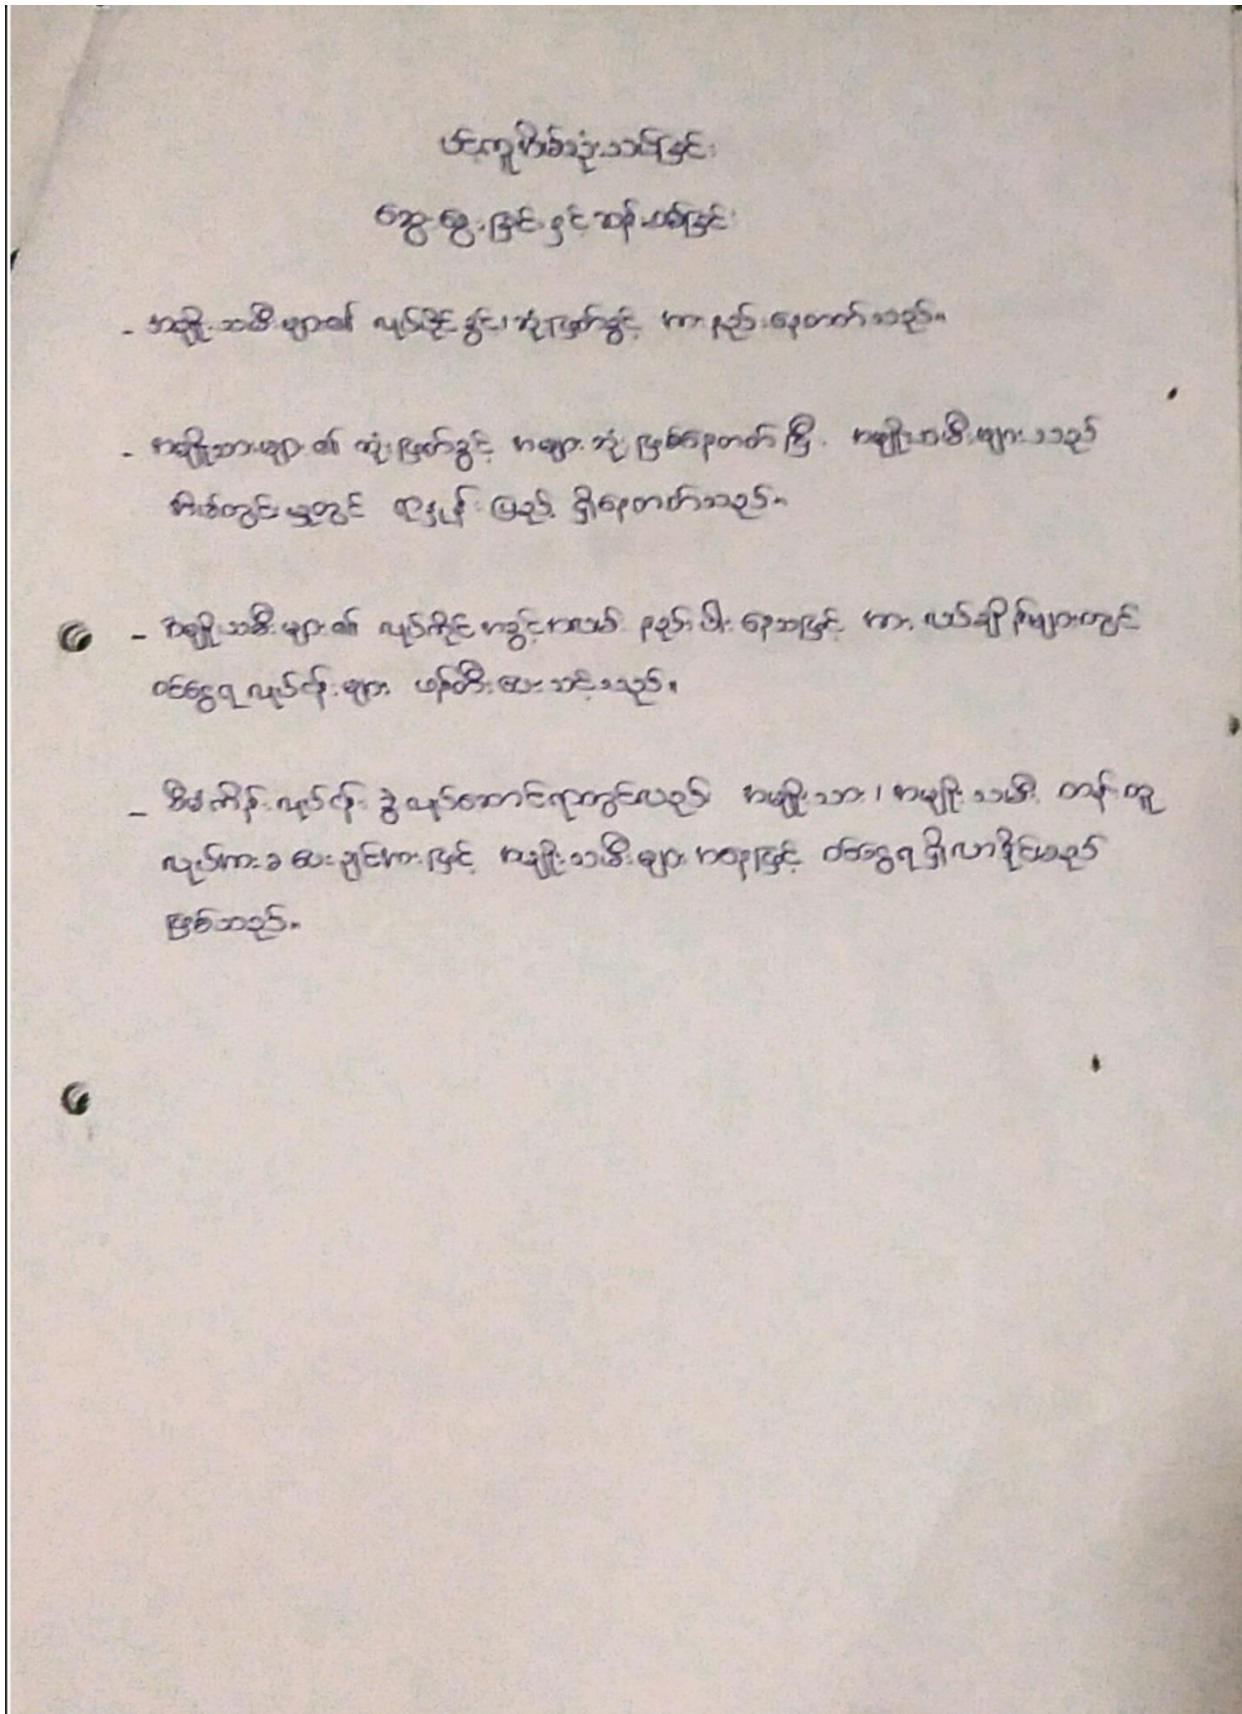 ပင့်ကူအိမ်သုံးသပ်ခြင်း
ဆွေးနွေးခြင်းနှင့် ဆန်းစစ်ခြင်း
- အမျိုးသမီးများ၏ လုပ်ပိုင်ခွင့်၊ ဆုံးဖြတ်ခွင့် အား နည်းနေတတ်သည်။
- အမျိုးသားများ၏ ဆုံးဖြတ်ခွင့် အများဆုံး ဖြစ်နေတတ်ပြီး အမျိုးသမီးများသည်
အိမ်တွင်းမှုတွင် ရာနှုန်းပြည့် ရှိနေတတ်သည်။
- အမျိုးသမီးများ၏ လုပ်ကိုင် အခွင့်အလမ်း နည်းပါးနေသဖြင့် အားလပ်ချိန်များတွင်
ဝင်ငွေရလုပ်ငန်းများ ဖန်တီးပေးသင့်သည်။
- စီမံကိန်းလုပ်ငန်းခွဲ လုပ်ဆောင်ရာတွင်လည်း အမျိုးသား၊ အမျိုးသမီး တန်းတူ
လုပ်အားခ ပေးချင်းအားဖြင့် အမျိုးသမီးများ အနေဖြင့် ဝင်ငွေရရှိလာနိုင်မည်
ဖြစ်သည်။